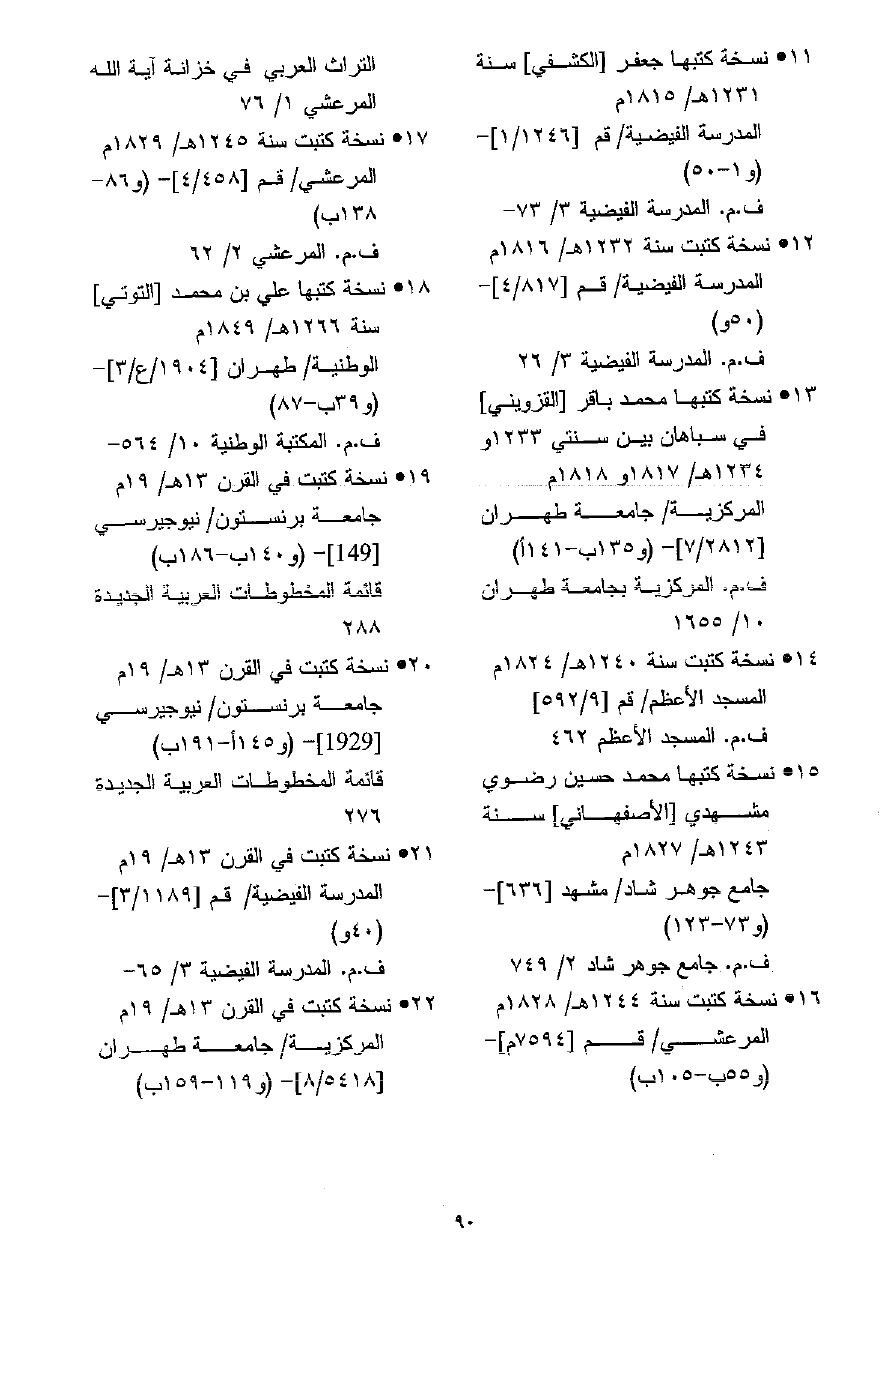 ١١• نسخة كتبها جعفر [الكشفي] سنة
١٢٣١هـ/ ١٨١٥م
المدرسة الفيضية/ قم [١/١٢٤٦]-
(و١-٥٠)
ف.م. المدرسة الفيضية ٣/ ٧٣-
١٢• نسخة كتبت سنة ١٢٣٢هـ/ ١٨١٦م
المدرسة الفيضية/ قم [٤/٨١٧]-
(٥٠و)
ف.م. المدرسة الفيضية ٣/ ٢٦
١٣• نسخة كتبها محمد باقر [القزويني]
في سباهان بين سنتي ١٢٣٣و
١٢٣٤هـ/ ١٨١٧و ١٨١٨م
المركزية/ جامعة طهران
[٧/٢٨١٢]- (و١٣٥ب-١٤١أ)
ف.م. المركزية بجامعة طهران
١٠/ ١٦٥٥
١٤• نسخة كتبت سنة ١٢٤٠هـ/ ١٨٢٤م
المسجد الأعظم/ قم [٥٩٢/٩]
ف.م. المسجد الأعظم ٤٦٢
١٥• نسخة كتبها محمد حسين رضوي
مشهدي [الأصفهاني] سنة
١٢٤٣هـ/ ١٨٢٧م
جامع جوهر شاد/ مشهد [٦٣٦]-
(و٧٣-١٢٣)
ف.م. جامع جوهر شاد ٢/ ٧٤٩
١٦• نسخة كتبت سنة ١٢٤٤هـ/ ١٨٢٨م
المرعشي/ قم [٧٥٩٤م]-
(و٥٥ب-١٠٥ب)
التراث العربي في خزانة آية الله
المرعشي ١/ ٧٦
١٧• نسخة كتبت سنة ١٢٤٥هـ/ ١٨٢٩م
المرعشي/ قم [٤/٤٥٨]- (و٨٦-
١٣٨ب)
ف.م. المرعشي ٢/ ٦٢
١٨• نسخة كتبها علي بن محمد [التوتي]
سنة ١٢٦٦هـ/ ١٨٤٩م
الوطنية/ طهران [١٩٠٤/ع/٣]-
(و٣٩ب-٨٧)
ف.م. المكتبة الوطنية ١٠/ ٥٦٤-
١٩• نسخة كتبت في القرن ١٣هـ/ ١٩م
جامعة برنستون/ نيوجيرسي
[149]- (و١٤٠ب-١٨٦ب)
قائمة المخطوطات العربية الجديدة
٢٨٨
٢٠• نسخة كتبت في القرن ١٣هـ/ ١٩م
جامعة برنستون/ نيوجيرسي
[1929]- (و١٤٥أ-١٩١ب)
قائمة المخطوطات العربية الجديدة
٢٧٦
٢١• نسخة كتبت في القرن ١٣هـ/ ١٩م
المدرسة الفيضية/ قم [٣/١١٨٩]-
(٤٠و)
ف.م. المدرسة الفيضية ٣/ ٦٥-
٢٢• نسخة كتبت في القرن ١٣هـ/ ١٩م
المركزية/ جامعة طهران
[٨/٥٤١٨]- (و١١٩-١٥٩ب)
٩٠